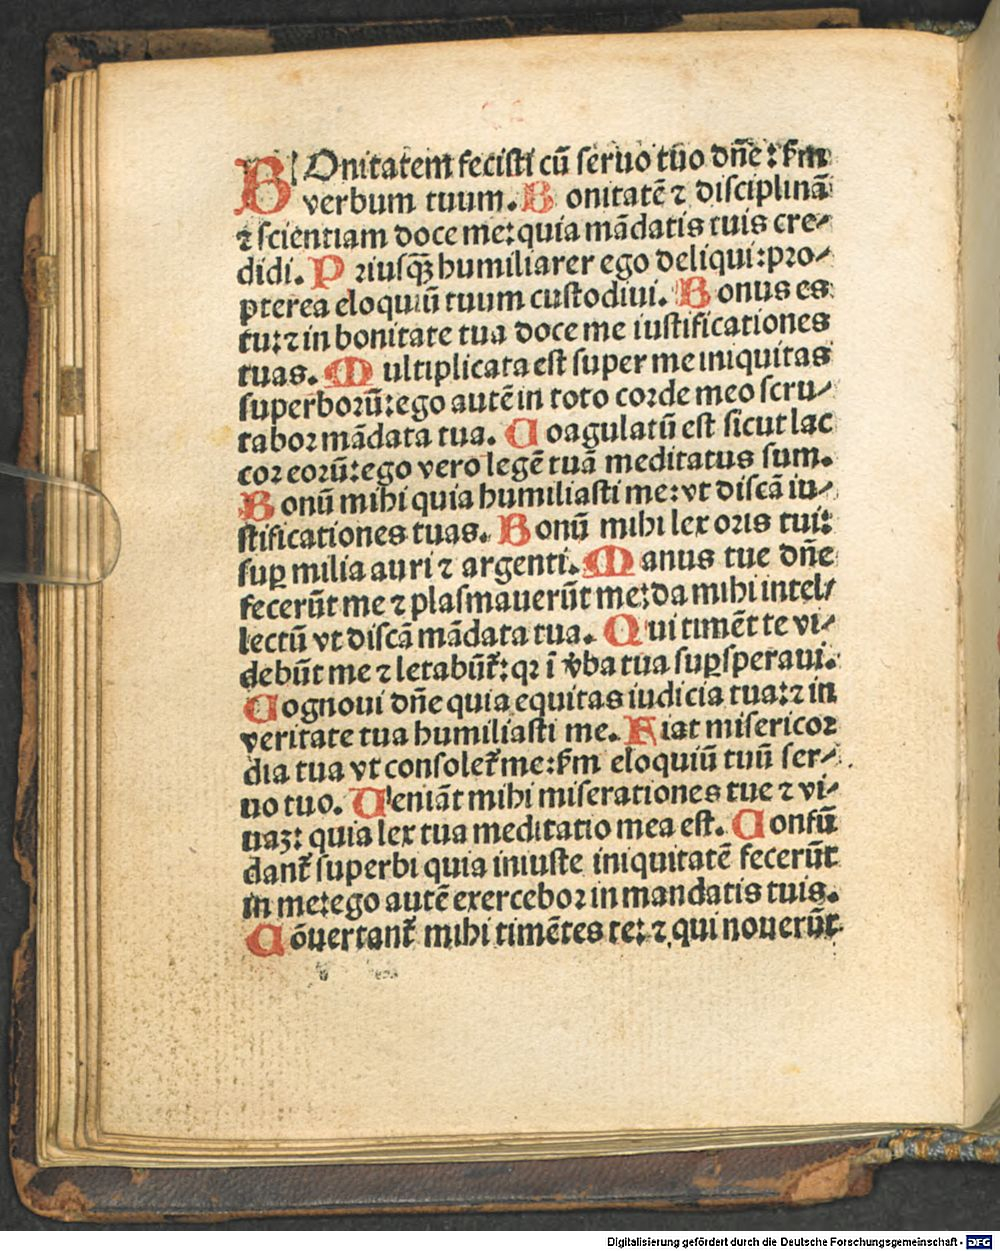 BOnitatem fecisti cū seruo tuo dn̄e: ẜm
verbum tuum. Bonitatē ⁊ disciplinā
⁊ scientiam doce me: quia mādatis tuis cre⸗
didi. Priusqȝ humiliarer ego deliqui: pro⸗
pterea eloquiū tuum custodiui. Bonus es
tu: ⁊ in bonitate tua doce me iustificationes
tuas. Multiplicata est super me iniquitas
superborū: ego autē in toto corde meo scru⸗
tabor mādata tua. Coagulatū est sicut lac
cor eorū: ego vero legē tuā meditatus sum.
Bonū mihi quia humiliasti me: vt discā iu⸗
stificationes tuas. Bonū mihi lex oris tui:
suꝑ milia auri ⁊ argenti. Manus tue dn̄e
fecerūt me ⁊ plasmauerūt me: da mihi intel⸗
lectū vt discā mādata tua. Qui timēt te vi⸗
debūt me ⁊ letabūt᷑: qꝛ ī v̄ba tua suꝑsperaui.
Cognoui dn̄e quia equitas iudicia tua: ⁊ in
veritate tua humiliasti me. Fiat misericor
dia tua vt consolet᷑ me: ẜm eloquiū tuū ser⸗
uo tuo. Ueniāt mihi miserationes tue ⁊ vi⸗
uaȝ: quia lex tua meditatio mea est. Confū
dant᷑ superbi quia iniuste iniquitatē fecerūt
in me: ego autē exercebor in mandatis tuis.
Cōuertant᷑ mihi timētes te: ⁊ qui nouerūt
Digitalisierung gefördert durch die Deutsche Forschungsgemeinschaft - DFG